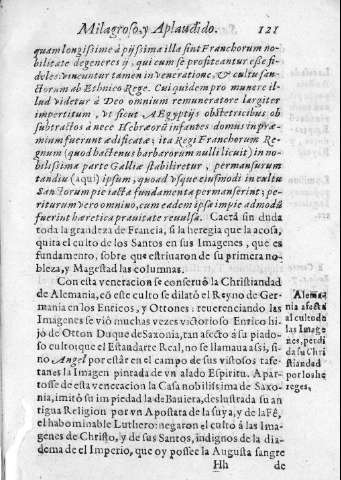 Milagroso, y Aplaudido. 121
quam longissime à pijssima illa sint Franchorum no-
bilitate degeneres ij, qui cum se profiteantur esse fi-
deles vincuntur tamen in veneratione, & cultu san-
ctorum ab Ethnico Rege. Cui quidem pro munere il-
lud videtur à Deo omnium remuneratore largiter
impertitum, vt sicut AEgyptijs obstetricibus ob
subtractos à nece Hebræorũ infantes domus in præ-
mium fuerunt ædificatæ; ita Regi Franchorum Re-
gnum (quod hactenus barbarorum nulli licuit) in no-
bilissima parte Galliæ stabiliretur, permansurum
tandiu (aqui) ipsum, quoad vsque eiusmodi in cultu
Sanctorum pie iacta fundamenta permanserint; pe-
riturum vero omnino, cum eadem ipsa impie admodũ
fuerint hæretica prauitate reuulsa. Caerà sin duda
toda la grandeza de Francia, si la heregia que la acosa,
quita el culto de los Santos en sus Imagenes, que es
fundamento, sobre que estriuaron de su primera no-
bleza, y Magestad las columnas.
Con esta veneracion se conseruò la Christiandad
de Alemania, cõ este culto se dilatò el Reyno de Ger-
mania en los Enricos, y Ottones: reuerenciando las
Imagenes se viò muchas vezes victorioso Enrico hi-
jo de Otton Duque de Saxonia, tan afecto à su piado-
so culto; que el Estandarte Real, no se llamaua assi, si-
no Angel por estâr en el campo de sus vistosos tafe-
tanes la Imagen pintada de vn alado Espiritu. Apar-
tòsse de esta veneracion la Casa nobilissima de Saxo-
nia, imitò su impiedad la de Bauiera, deslustra da su an-
tigua Religion por vn Apostata de la suya, y de la Fè,
el habominable Luthero: negaron el culto à las Ima-
genes de Christo, y de sus Santos, indignos de la dia-
dema de el Imperio, que oy possee la Augusta sangre
Hh de
Alema-
nia afecta
al culto de
las Image
nes, perdi
da su Chri
stiandad
por los he
reges,